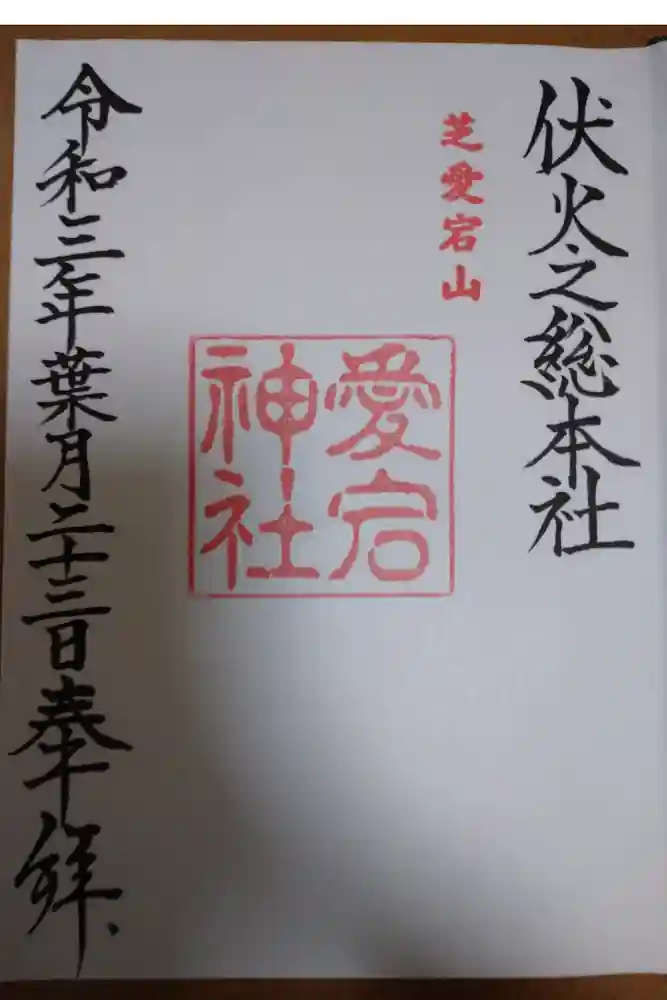 伏火之總本社
芝愛宕山
愛宕
神社
令和三年葉月二十三日奉拝